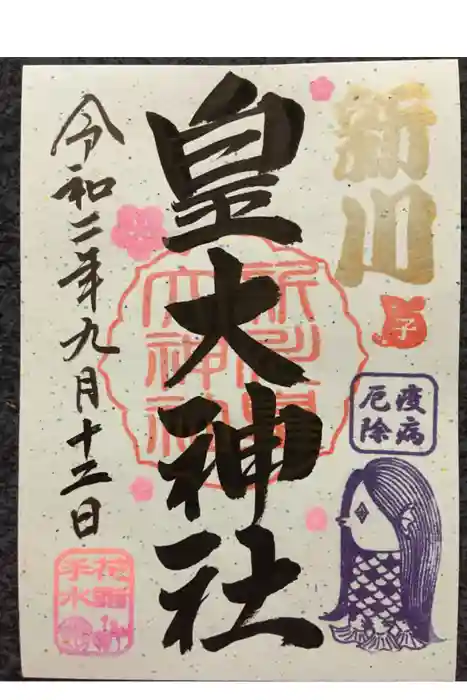 新川
子
疫病
厄除
皇大神社
新川皇
大神社
令和二年九月十三日
花霞
手水